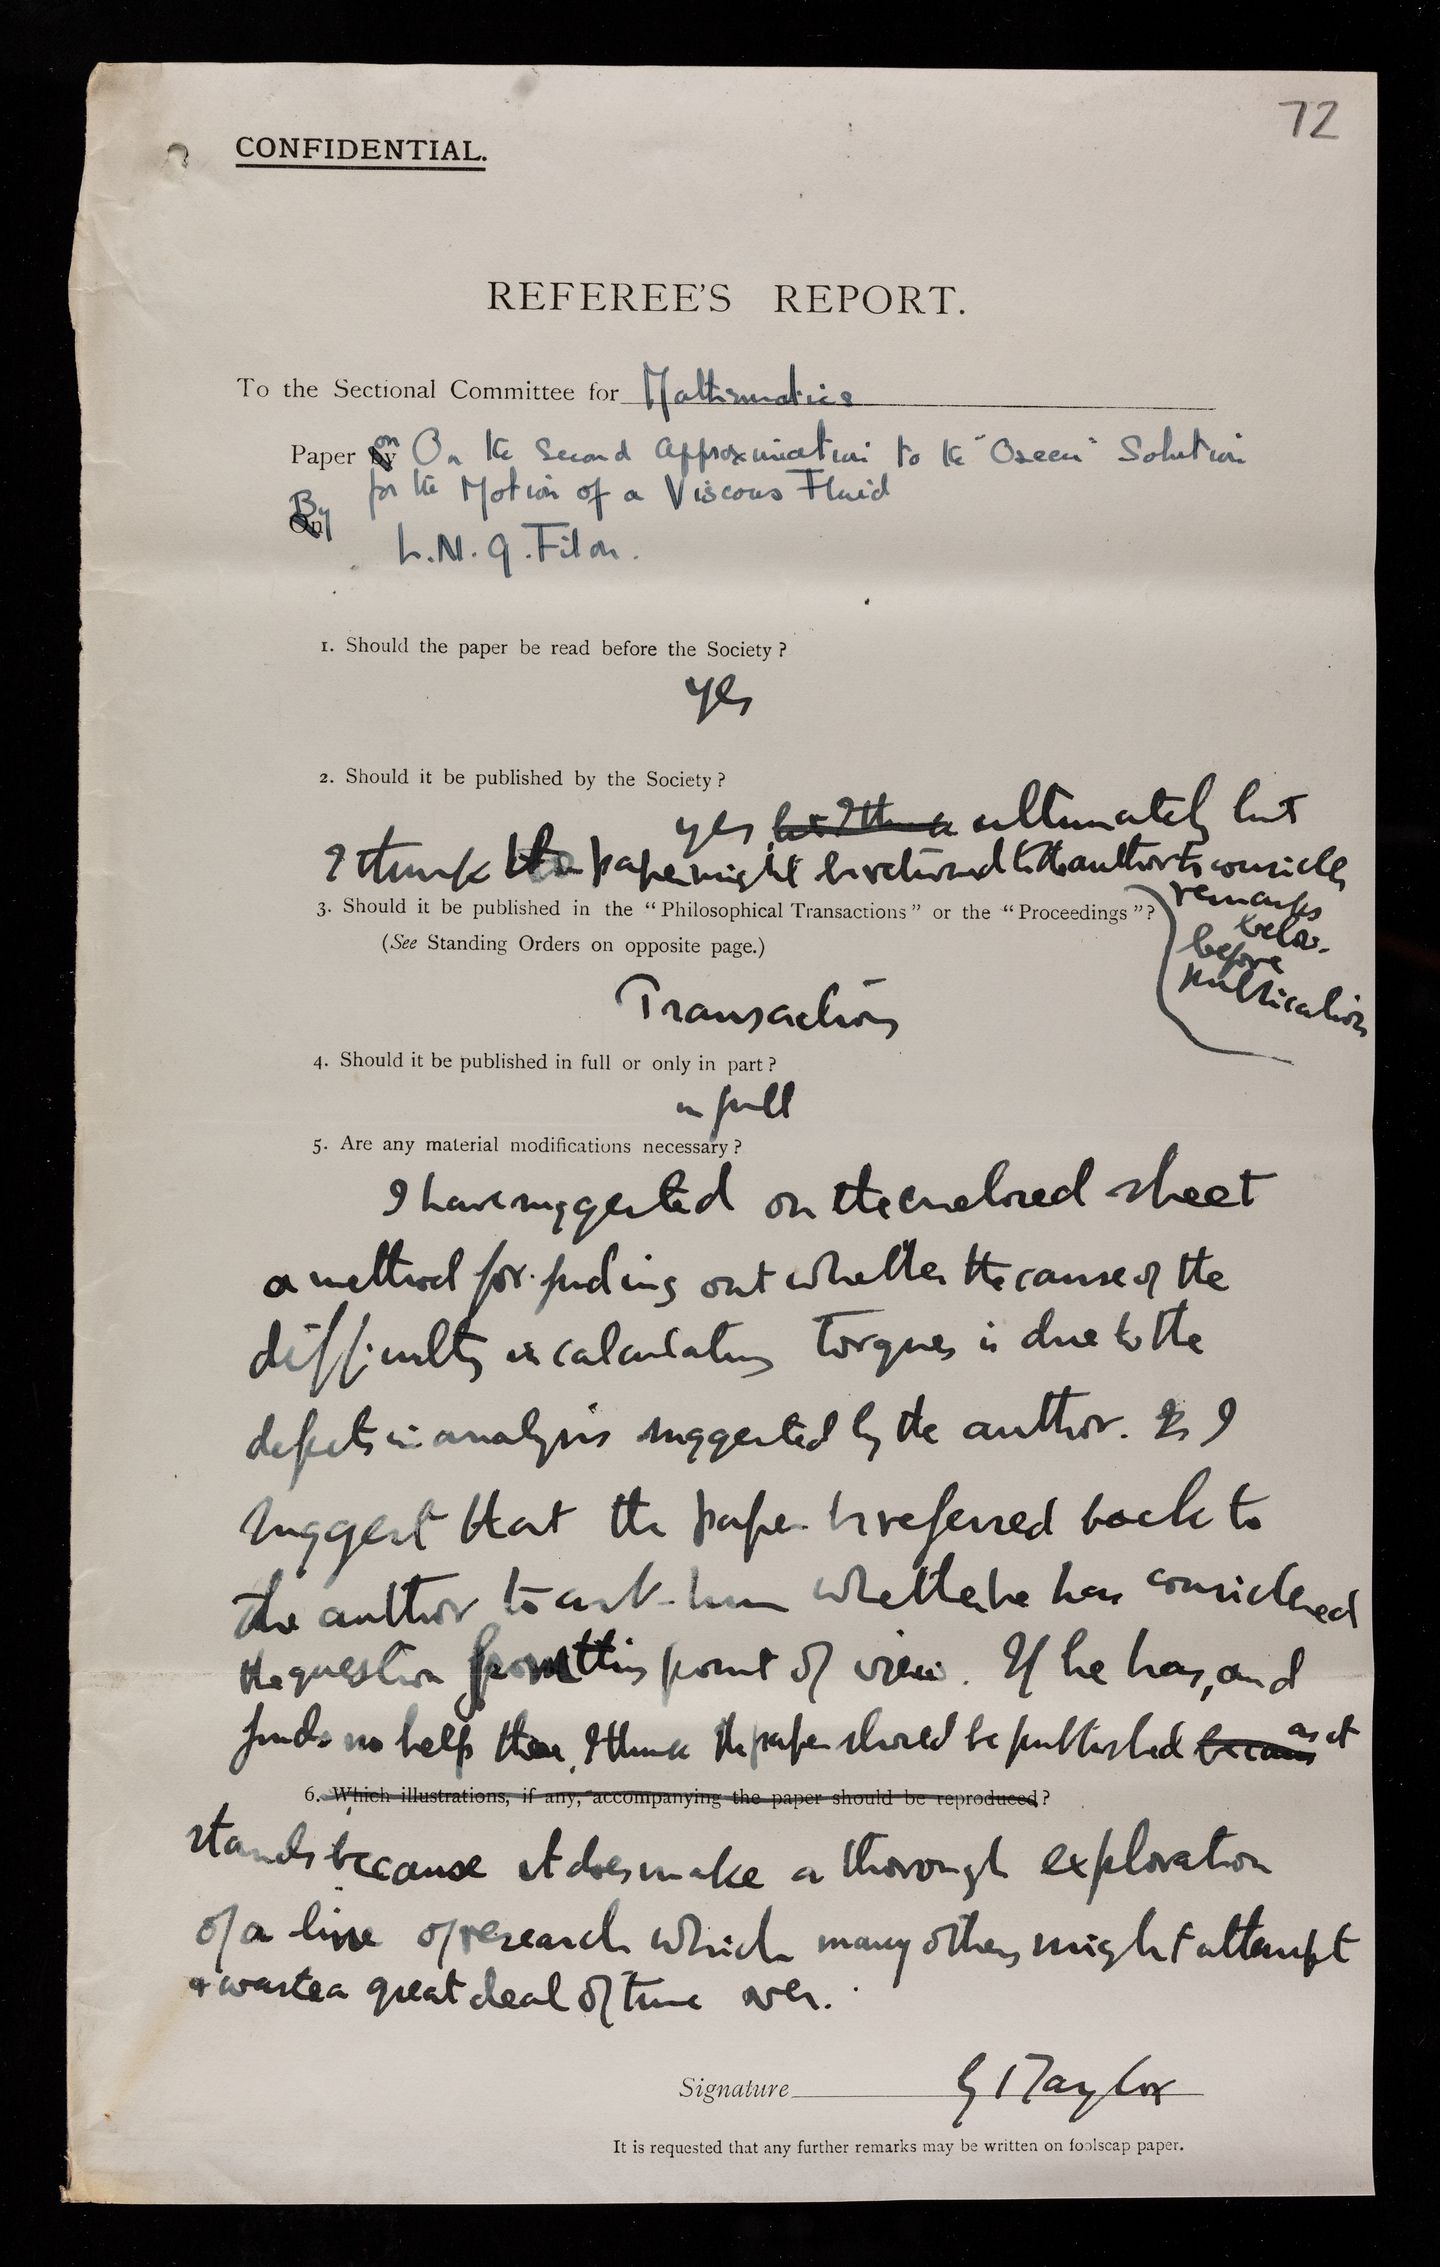 72
CONFIDENTIAL.
REFEREE'S REPORT.
To the Sectional Committee for Mathematics
Paper by on On the Second Approximation to the "Oseen" Solution
for the Motion of a Viscous Fluid
On By
L.N.G. Filon.
1. Should the paper be read before the Society?
yes
2. Should it be published by the Society?
yes, but I think ultimately but
I think the paper might be returned to the author to consider
remarks
below
before
publication
3. Should it be published in the "Philosophical Transactions" or the "Proceedings"?
(See Standing Orders on opposite page.)
Transactions
4. Should it be published in full or only in part?
in full
5. Are any material modifications necessary?
I have suggested on the enclosed sheet
a method for finding out whether the cause of the
difficulty in calculating Torques is due to the
defects in analysis suggested by the author. I
suggest that the paper be referred back to
the author to ask him whether he has considered
the question from this point of view. If he has, and
finds no help there, I think the paper should be published because as it
6. Which illustrations, if any, accompanying the paper should be reproduced?
stands because it does make a thorough exploration
of a line of research which many others might attempt
& waste a great deal of time over.
Signature G I Taylor
It is requested that any further remarks may be written on foolscap paper.